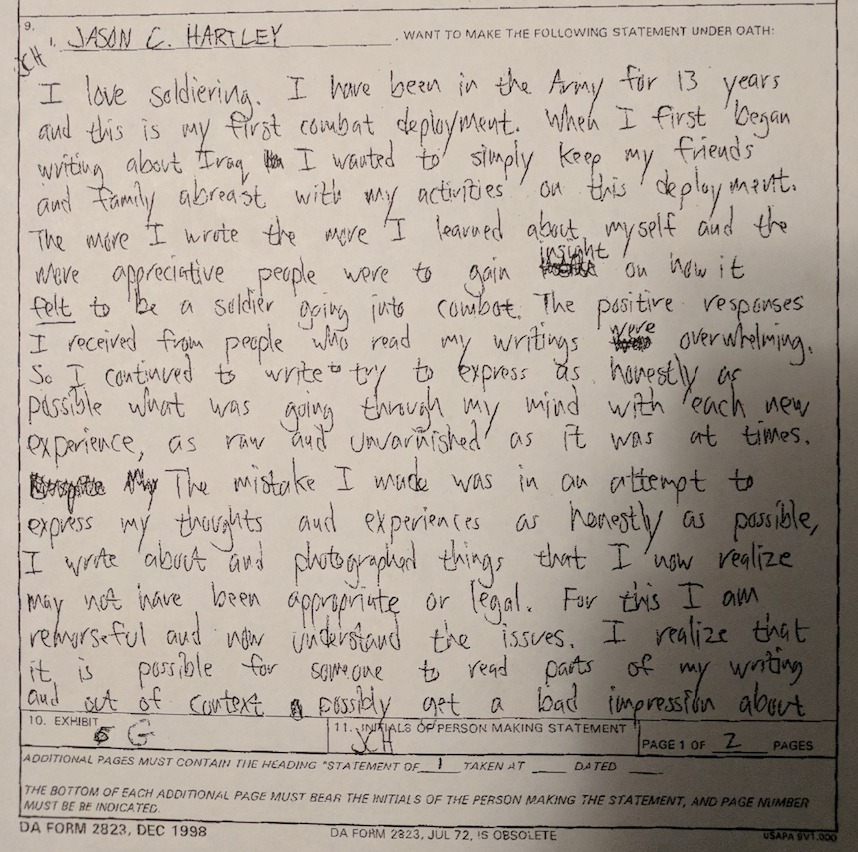 9.
I, JASON C. HARTLEY, WANT TO MAKE THE FOLLOWING STATEMENT UNDER OATH:
JCH
I love soldiering. I have been in the Army for 13 years
and this is my first combat deployment. When I first began
writing about Iraq I wanted to simply keep my friends
and family abreast with my activities on this deployment.
The more I wrote the more I learned about myself and the
more appreciative people were to gain insight on how it
felt to be a soldier going into combat. The positive responses
I received from people who read my writings were overwhelming.
So I continued to write to try to express as honestly as
possible what was going through my mind with each new
experience, as raw and unvarnished as it was at times.
The mistake I made was in an attempt to
express my thoughts and experiences as honestly as possible,
I wrote about and photographed things that I now realize
may not have been appropriate or legal. For this I am
remorseful and now understand the issues. I realize that
it is possible for someone to read parts of my writing
and out of context possibly get a bad impression about
10. EXHIBIT
G
11. INITIALS OF PERSON MAKING STATEMENT
JCH
PAGE 1 OF 2 PAGES
ADDITIONAL PAGES MUST CONTAIN THE HEADING "STATEMENT OF 1 TAKEN AT ___ DATED ___
THE BOTTOM OF EACH ADDITIONAL PAGE MUST BEAR THE INITIALS OF THE PERSON MAKING THE STATEMENT, AND PAGE NUMBER
MUST BE BE INDICATED.
DA FORM 2823, DEC 1998
DA FORM 2823, JUL 72, IS OBSOLETE
USAPA 9V1.000